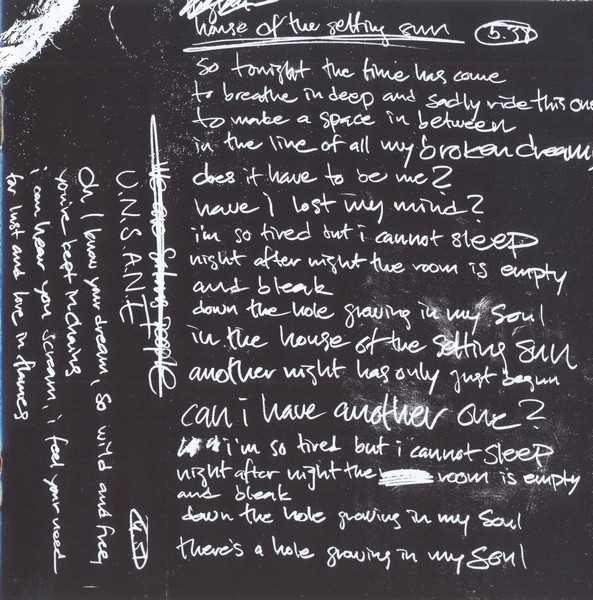 house of the setting sun 5.31
so tonight the time has come
to breathe in deep and sadly ride this one
to make a space in between
in the line of all my broken dreams
does it have to be me?
have i lost my mind?
i'm so tired but i cannot sleep
night after night the room is empty
and bleak
down the hole growing in my soul
in the house of the setting sun
another night has only just begun
can i have another one?
i'm so tired but i cannot sleep
night after night the room is empty
and bleak
down the hole growing in my soul
there's a hole growing in my soul
people
U.N.S.A.N.E
Oh, I know your dream, so wild and free,
you've kept in chains
i can hear you scream, i feel your need
for lust and love in flames